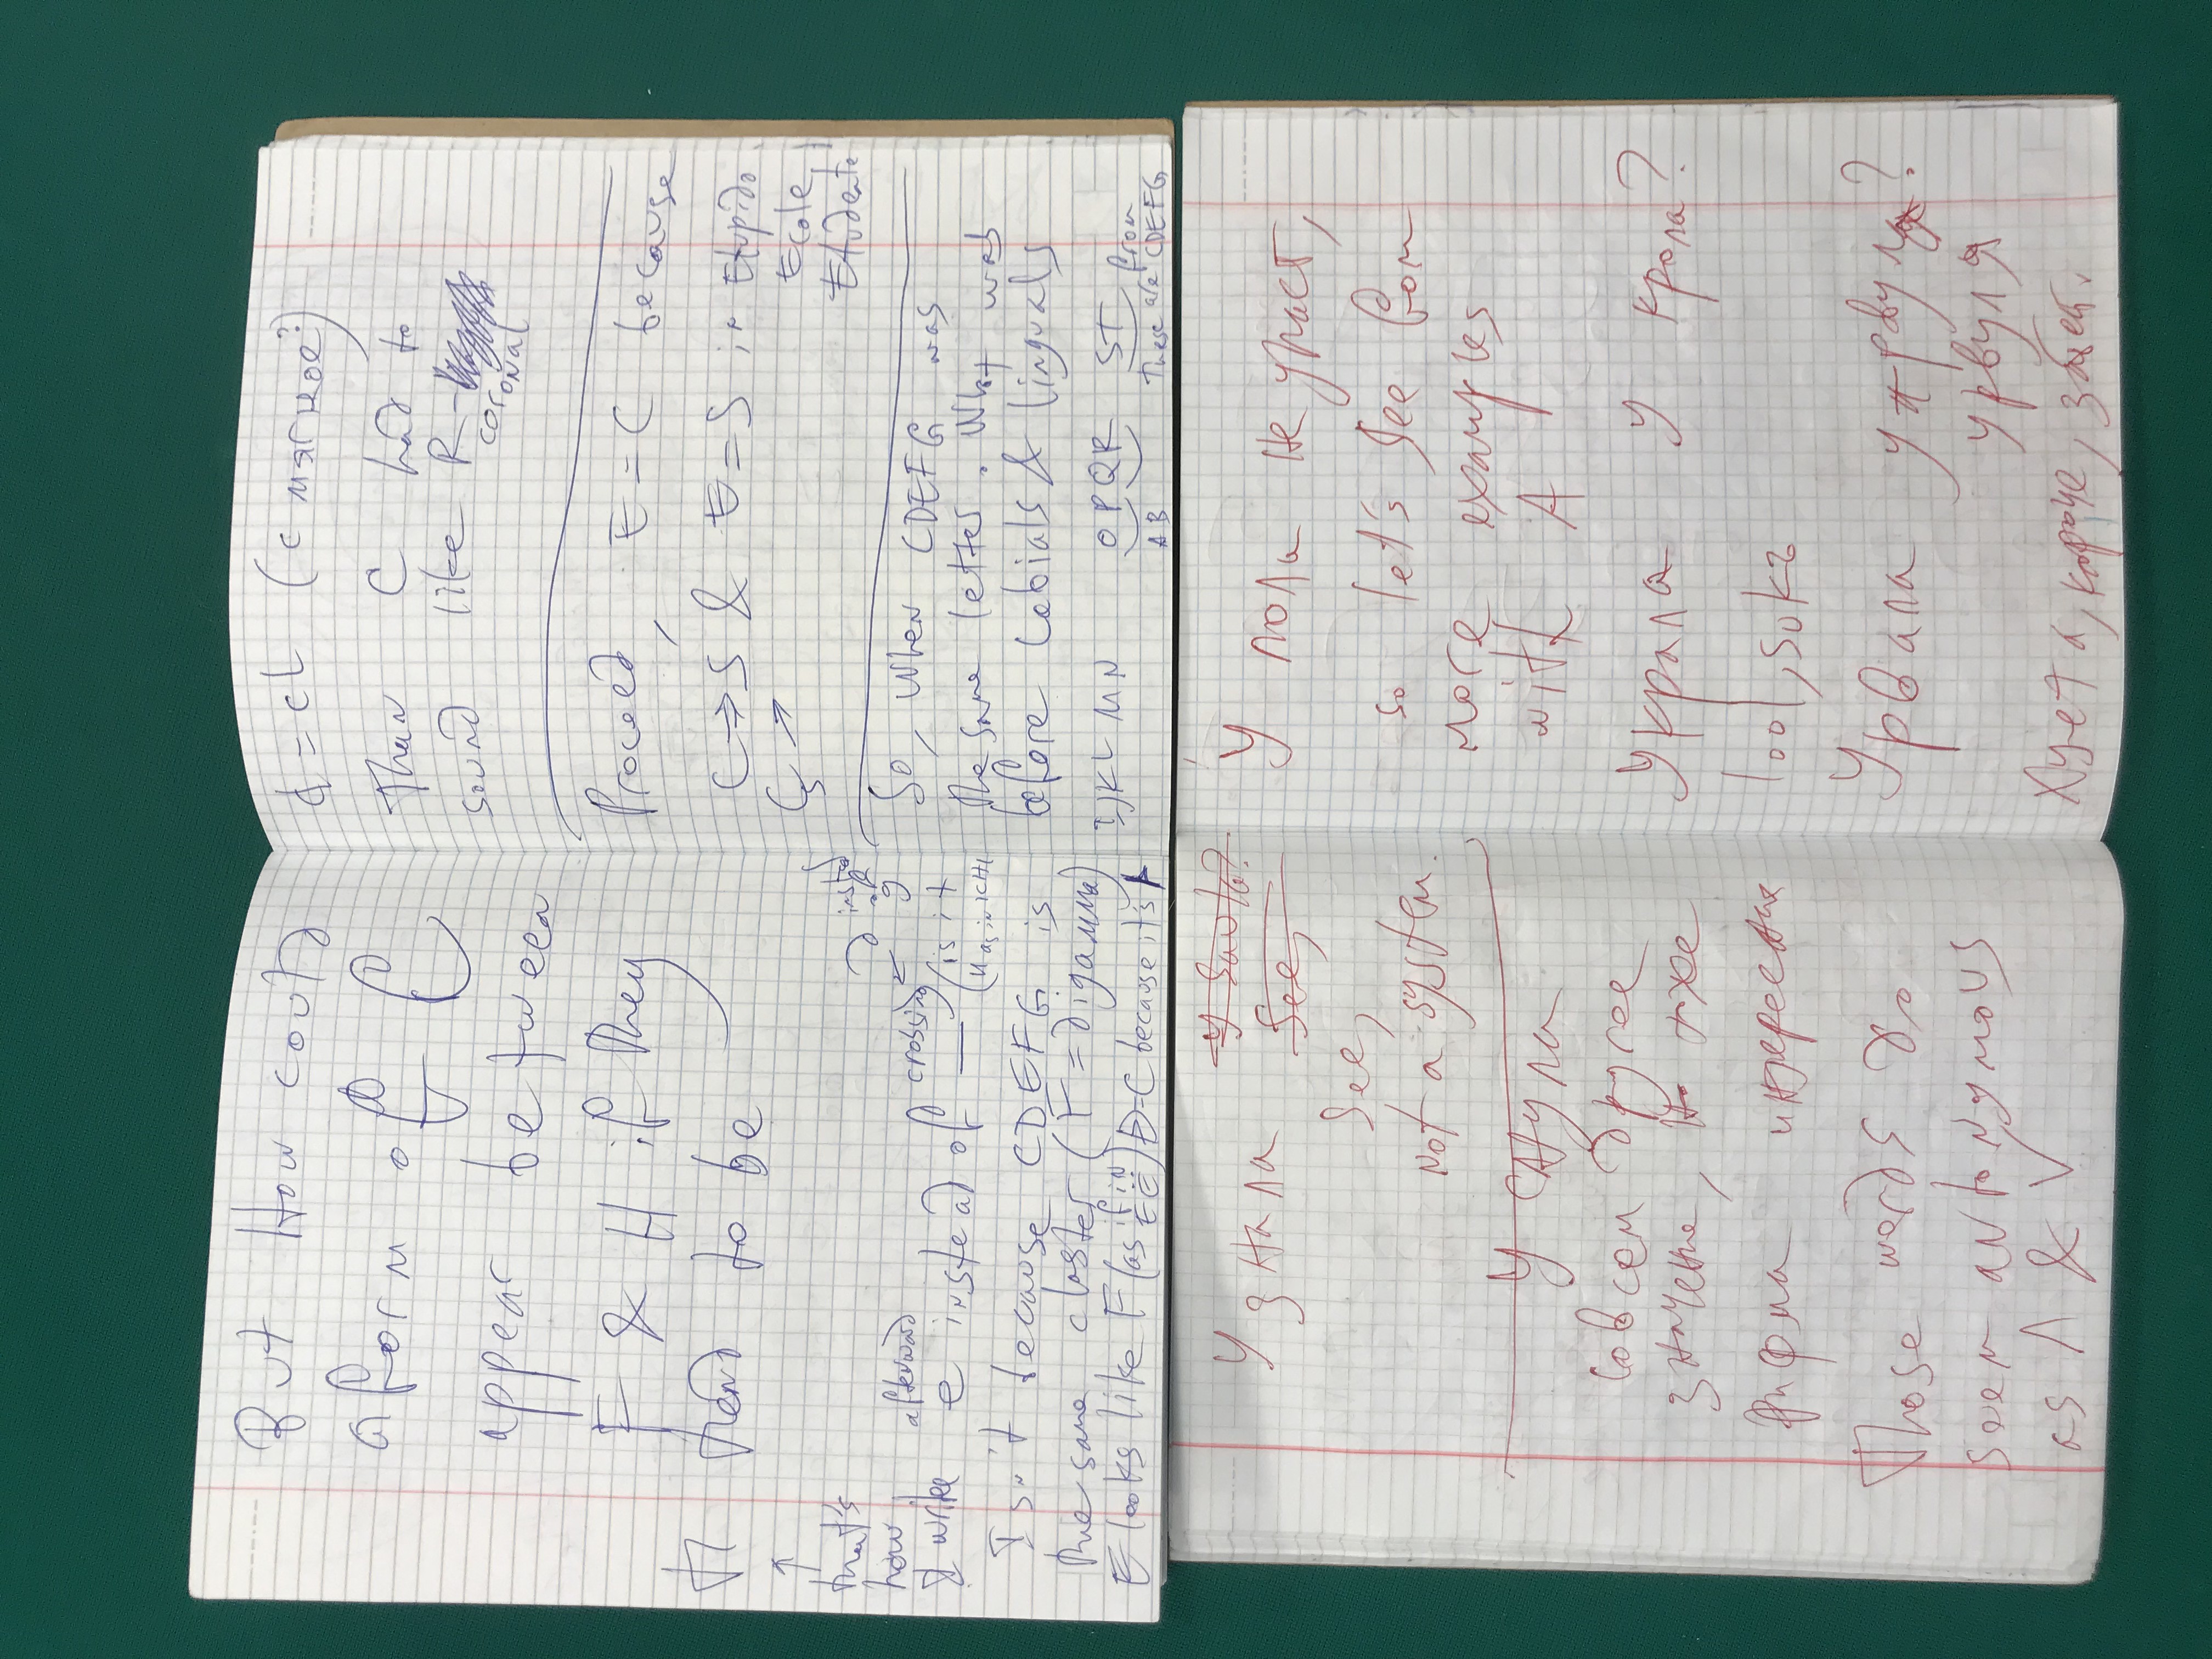 But How could
a form of C
appear between
F & H if they
tend to be
that's
how
I write
afterward
e instead of — crossing
(is it
insted
of
g
Isn't because CDEFG is
the same claster (F = digamma)
E looks like F (as if in
Ё Ё) D-C because it's
d = cl (с мягкое?)
Than C had to
sound like R-
coronal
Proceed, E = C because
C → S & E = S in Etupido
Ç ↗ Ecole
Etudente
So, when CDEFG was
the same letter. What was
before Labials & linguals
IJKL MN OPQR ST
AB these are from CDEFG
Узнала
See,
See,
not a system.
У стула
совсем другое
значение, но тоже
рифма интересная
Those words do
seem antonymous
as Λ & V
У пола не украст,
so let's see
more examples
with A
Украла у крола?
lool, suka
Урвала у
урвуля
Хуета, короче,